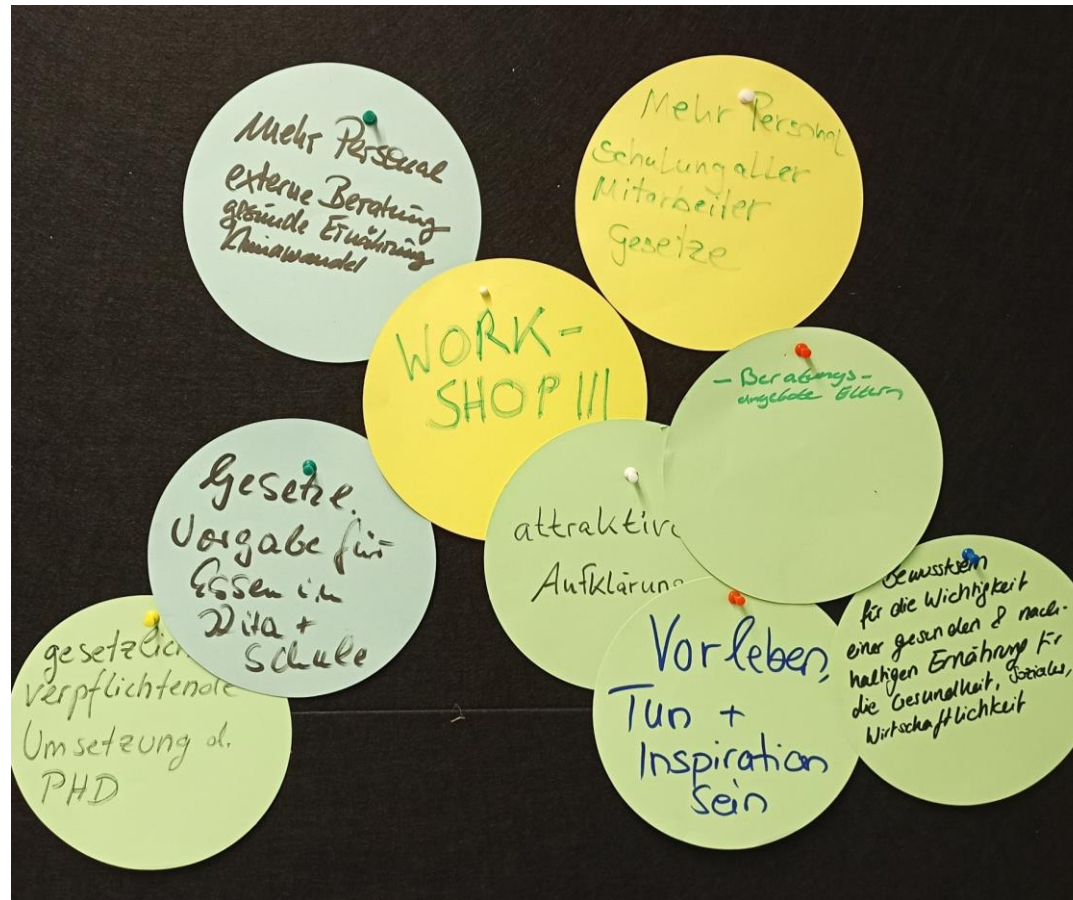 Mehr Personal
externe Beratung
gesunde Ernährung
Klimawandel
Mehr Personal
Schulung aller
Mitarbeiter
Gesetze
WORK-
SHOP!!!
- Beratungs-
angebote Eltern
Gesetze.
Vorgabe für
Essen in
Kita +
Schule
attraktive
Aufklärung
gesetzlich
verpflichtende
Umsetzung d.
PHD
Vorleben,
Tun +
Inspiration
sein
Bewusstsein
für die Wichtigkeit
einer gesunden & nach-
haltigen Ernährung für
die Gesundheit, Soziales,
Wirtschaftlichkeit